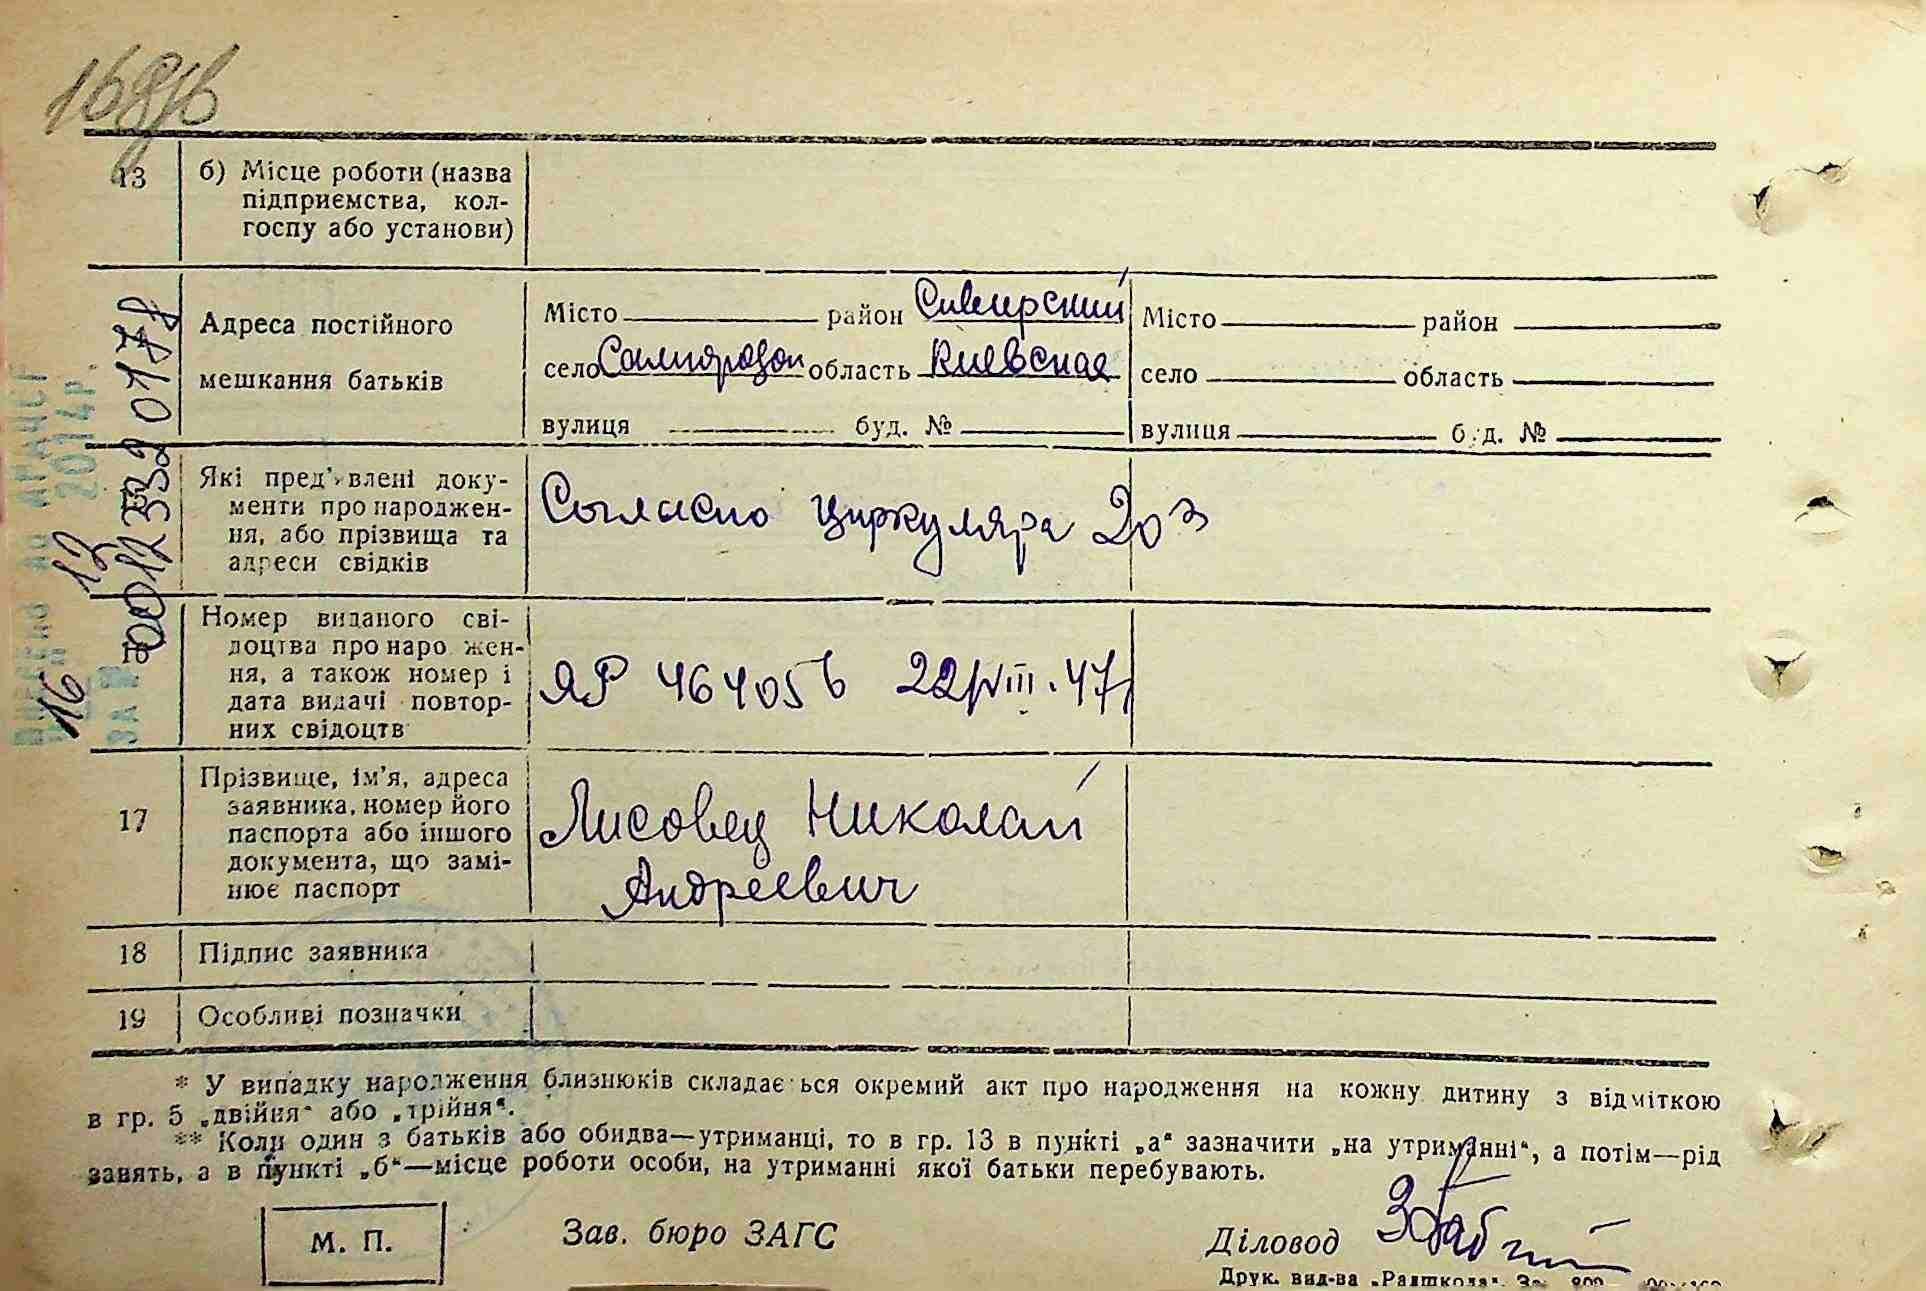 13
б) Місце роботи (назва
підприємства, кол-
госпу або установи)
Адреса постійного
мешкання батьків
Місто район Сквирский
село Самгородок область Киевская
вулиця буд. №
Місто район
село область
вулиця буд. №
Які пред'явлені доку-
менти про народжен-
ня, або прізвища та
адреси свідків
Согласно циркуляра 203
Номер виданого сві-
доцтва про народжен-
ня, а також номер і
дата видачі повтор-
них свідоцтв
ЯР 464056 22/VIII.47
17
Прізвище, ім'я, адреса
заявника, номер його
паспорта або іншого
документа, що замі-
нює паспорт
Лисовец Николай
Андреевич
18
Підпис заявника
19
Особливі позначки
* У випадку народження близнюків складається окремий акт про народження на кожну дитину з відміткою
в гр. 5 „двійня“ або „трійня“.
** Коли один з батьків або обидва—утриманці, то в гр. 13 в пункті „а“ зазначити „на утриманні“, а потім—рід
занять, а в пункті „б“—місце роботи особи, на утриманні якої батьки перебувають.
М. П.
Зав. бюро ЗАГС
Діловод
Друк. вид-ва „Радшкола“.
2014р.
00123320178
16 12